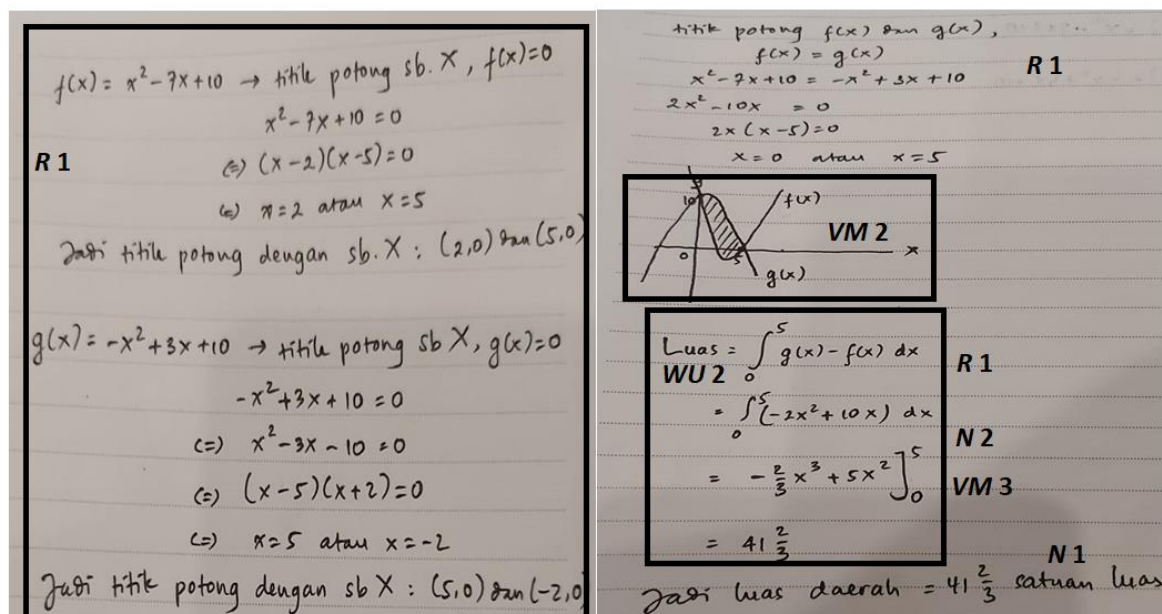 f(x) = x² - 7x + 10 → titik potong sb. X, f(x) = 0
x² - 7x + 10 = 0
R 1
(=) (x - 2)(x - 5) = 0
(=) x = 2 atau x = 5
Jadi titik potong dengan sb. X : (2,0) dan (5,0)
g(x) = -x² + 3x + 10 → titik potong sb X, g(x) = 0
-x² + 3x + 10 = 0
(=) x² - 3x - 10 = 0
(=) (x - 5)(x + 2) = 0
(=) x = 5 atau x = -2
Jadi titik potong dengan sb X : (5,0) dan (-2,0)
titik potong f(x) dan g(x),
f(x) = g(x)
R 1
x² - 7x + 10 = -x² + 3x + 10
2x² - 10x = 0
2x (x - 5) = 0
x = 0 atau x = 5
y
10
f(x)
VM 2
0
5
x
g(x)
Luas = ∫₀⁵ g(x) - f(x) dx
WU 2
R 1
= ∫₀⁵ (-2x² + 10x) dx
N 2
= -2/3 x³ + 5x² ]₀⁵
VM 3
= 41 2/3
N 1
Jadi luas daerah = 41 2/3 satuan luas